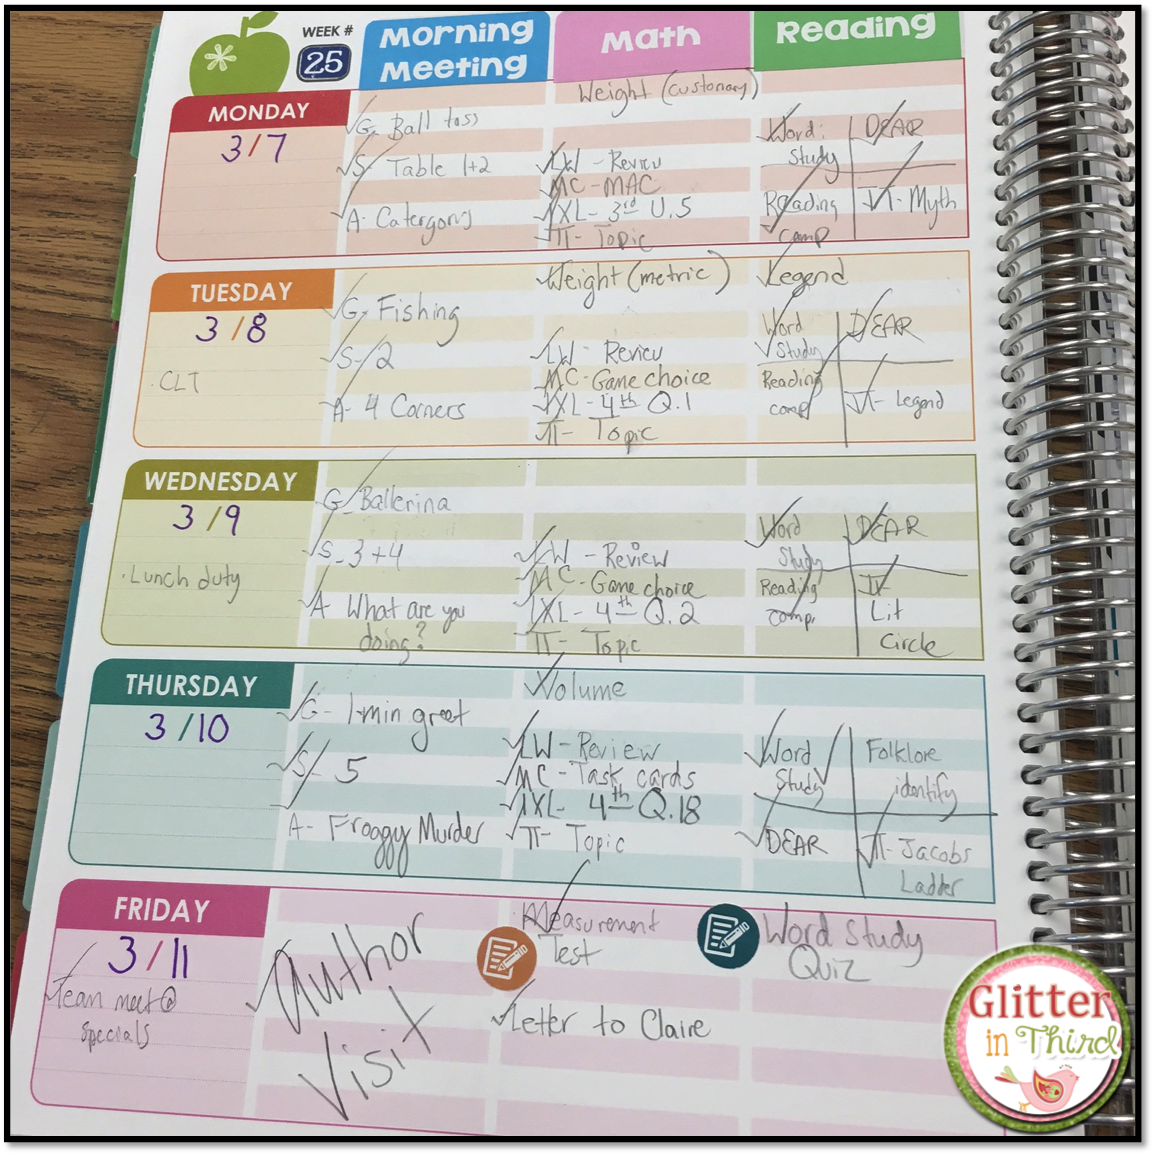 WEEK #
25
Morning
Meeting
Math
Reading
MONDAY
3/7
G- Ball toss
S- Table 1+2
A- Catergorys
Weight (customary)
LW - Review
MC - MAC
IXL - 3rd U.5
π - Topic
Word
Study
DEAR
Reading
comp
π - Myth
TUESDAY
3/8
· CLT
G- Fishing
S- 2
A- 4 Corners
Weight (metric)
LW - Review
MC - Game choice
IXL - 4th Q.1
π - Topic
Legend
Word
Study
DEAR
Reading
comp
π - Legend
WEDNESDAY
3/9
· Lunch duty
G- Ballerina
S- 3+4
A What are you
doing?
LW - Review
MC - Game choice
IXL - 4th Q.2
π - Topic
Word
Study
DEAR
Reading
comp.
π
Lit
Circle
THURSDAY
3/10
G- 1-min greet
S- 5
A- Froggy Murder
Volume
LW - Review
MC - Task cards
IXL - 4th Q.18
π - Topic
Word
Study
Folklore
identify
DEAR
π - Jacobs
Ladder
FRIDAY
3/11
Team meet @
specials
Author
Visit
Measurement
Test
Letter to Claire
Word Study
Quiz
Glitter
in Third